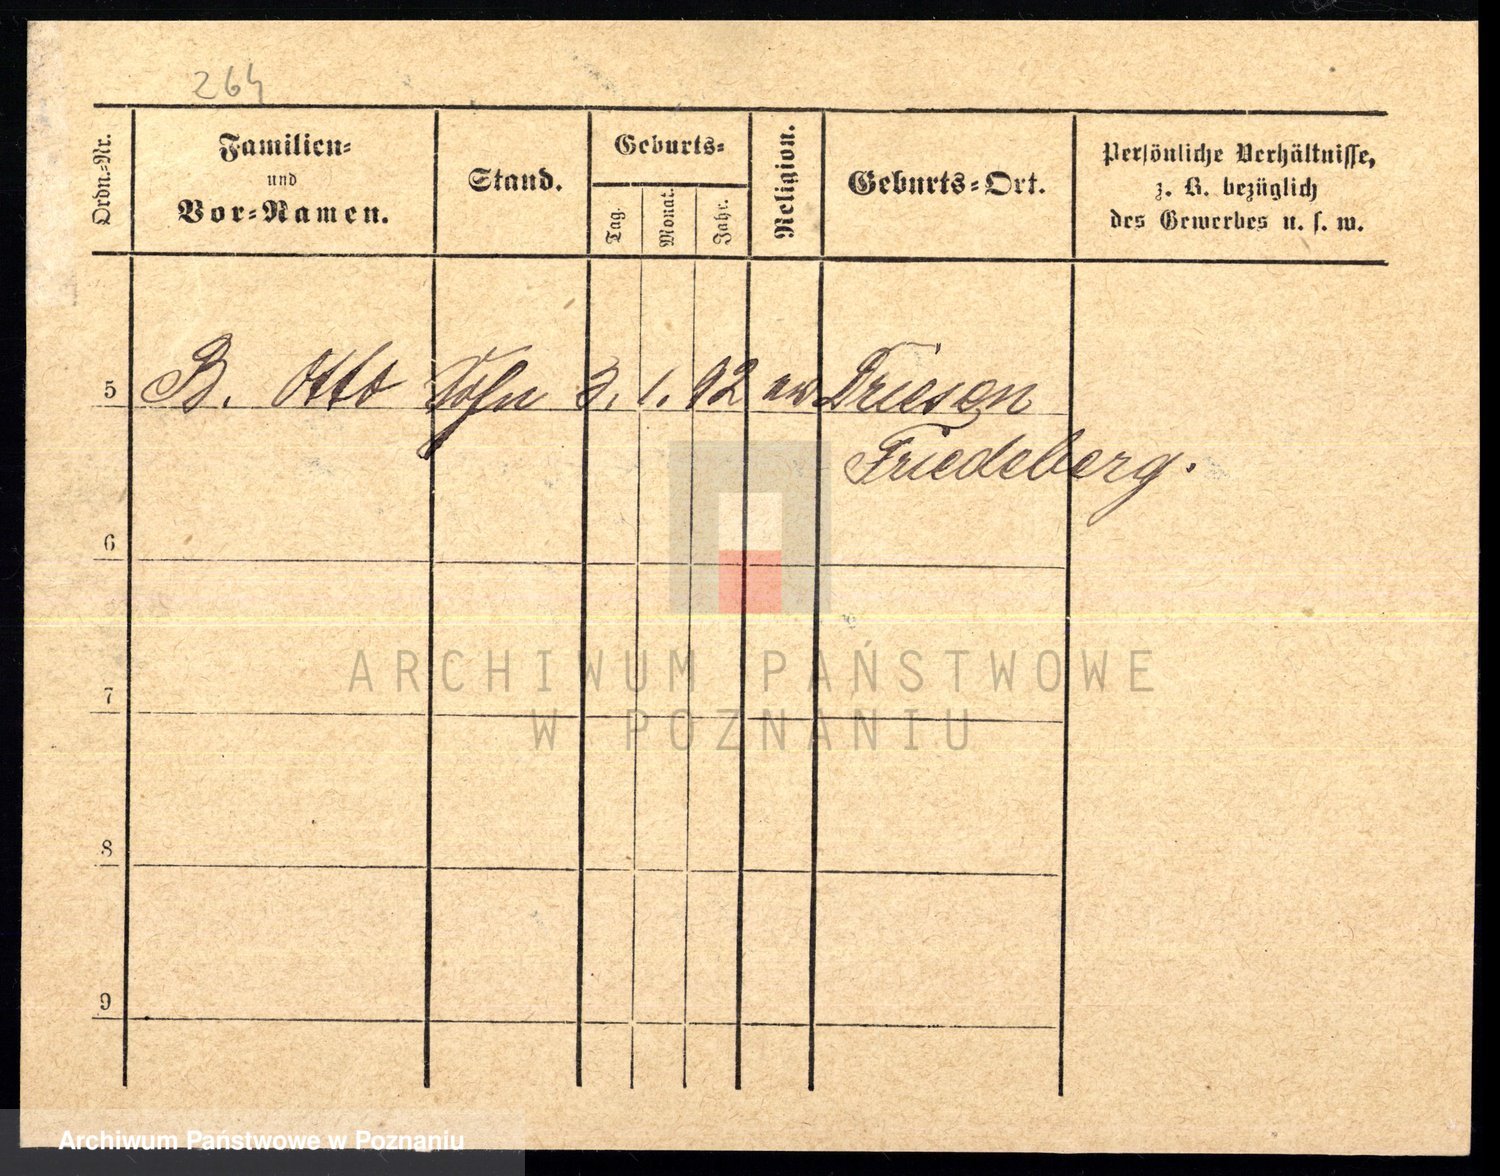 264
Ordn.-Nr. Familien- und Vor-Namen. Stand. Geburts- Tag. Monat. Jahr. Religion. Geburts-Ort. Persönliche Verhältnisse, z. B. bezüglich des Gewerbes u. s. w.
5 B. Otto Sohn 3. 1. 92 ev Driesen
Friedeberg.
6
ARCHIWUM PAŃSTWOWE
7
W POZNANIU
8
9
Archiwum Państwowe w Poznaniu